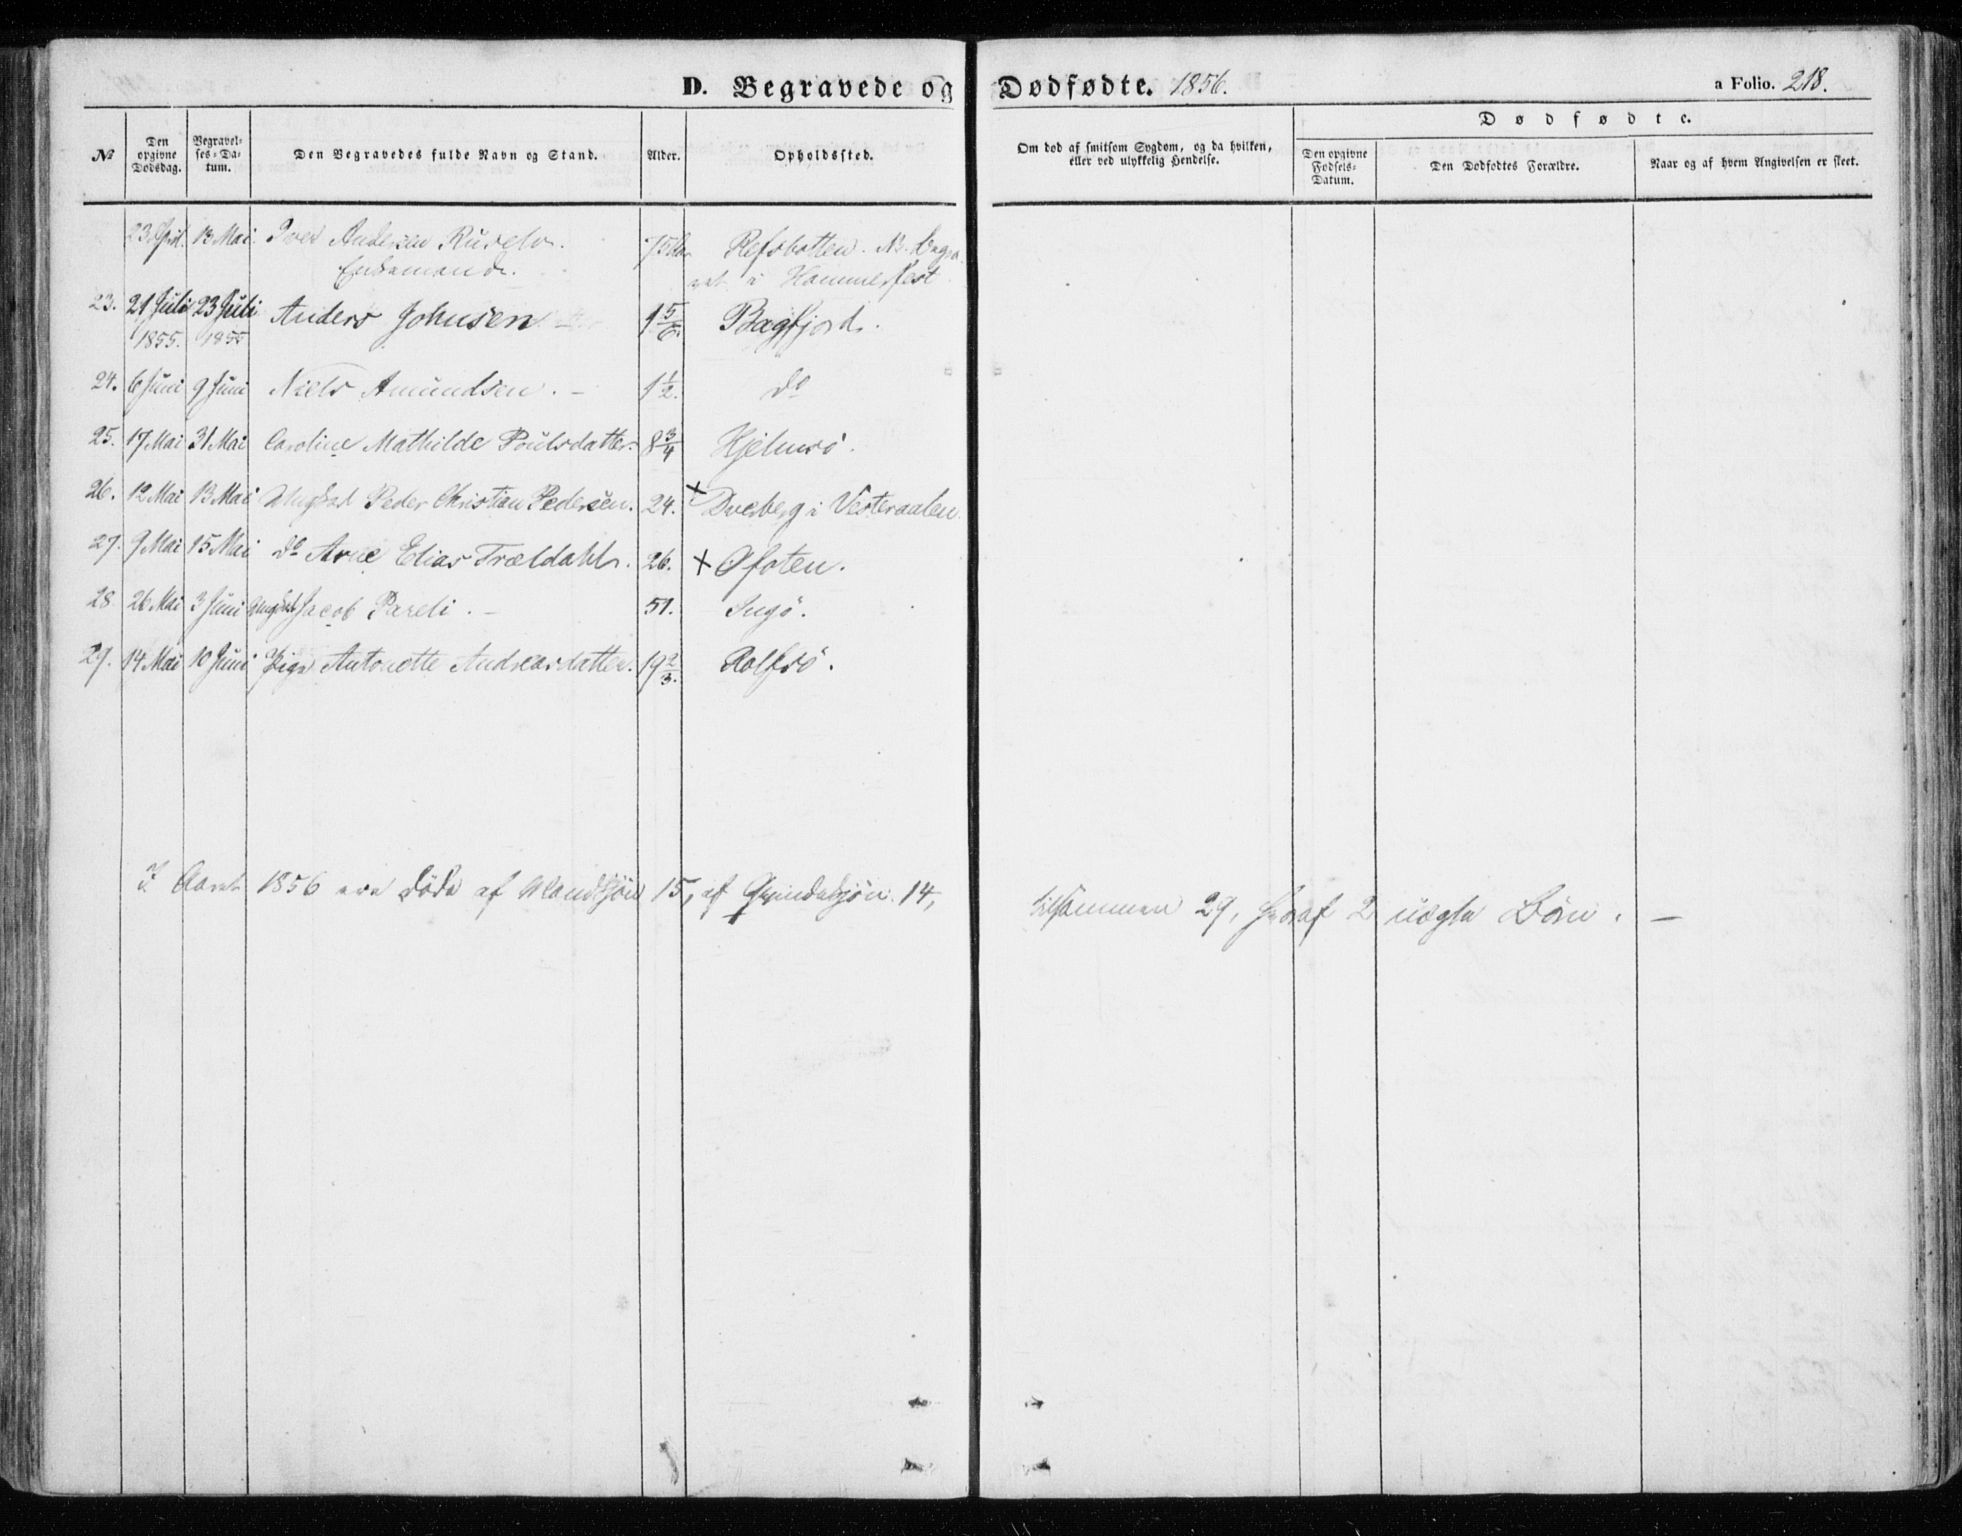 D. Begravede og Dødfødte. 1856.
a Folio. 218.
No
Den opgivne Dødsdag.
Begravelses-Datum.
Den Begravedes fulde Navn og Stand.
Alder.
Opholdssted.
Om død af smitsom Sygdom, og da hvilken,
eller ved ulykkelig Hendelse.
Dødfødte.
Den opgivne Fødsels-Datum.
Den Dødfødtes Forældre.
Naar og af hvem Angivelsen er skeet.
23 April. 13 Mai. Iver Andersen Ruselv. 75 Refsbotten. NB. Begra
Enkemand. vet i Hammerfest
23. 21 Juli 23 Juli Anders Johnsen 1 5/6. Bagfjord.
1855. 1855
24. 6 Juni 9 Juni Niels Amundsen. - 1 1/2. do
25. 17 Mai 31 Mai Caroline Mathilde Poulsdatter. 8 3/4 Hjelmsö.
26. 12 Mai 13 Mai Ungkarl Peder Christian Pedersen. 24. + Dverberg i Vesteraalen.
27. 9 Mai 15 Mai do Arne Elias Trældahl. 26. + Ofoten.
28. 26 Mai 3 Juni Ungkarl Jacob Pareli. - 51. Ingö.
29. 14 Mai 10 Juni Pige Antonette Andreasdatter. 19 2/3. Rolfsö.
I Aaret 1856 ere døde af Mandkjön 15, af Qvindekjön 14, tilsammen 29, heraf 2 uægte Börn. -